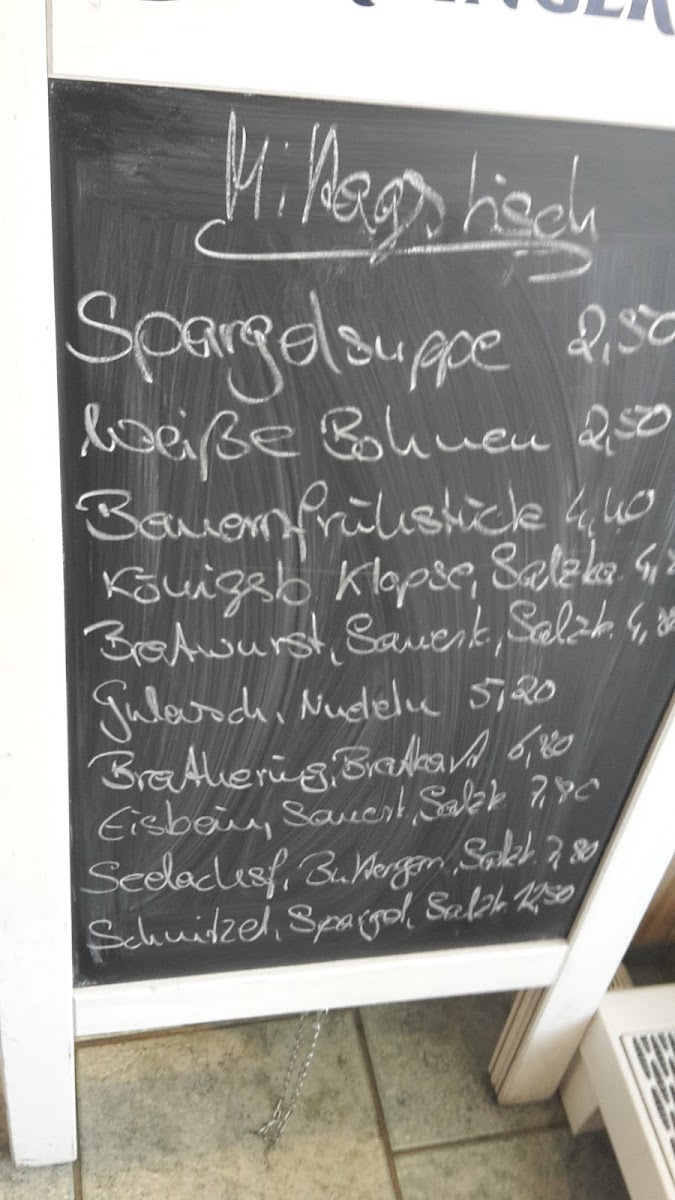 Mittagstisch
Spargelsuppe 2,50
Weiße Bohnen 2,50
Bauernfrühstück 4,40
Königsb. Klopse, Salzka.
Bratwurst, Sauerk., Salzk.
Gulasch, Nudeln 5,20
Brathering, Bratkart 6,80
Eisbein, Sauerk, Salzk.
Seelachsf, Buttergem, Salzk. 7,80
Schnitzel, Spargel, Salzk. 12,50